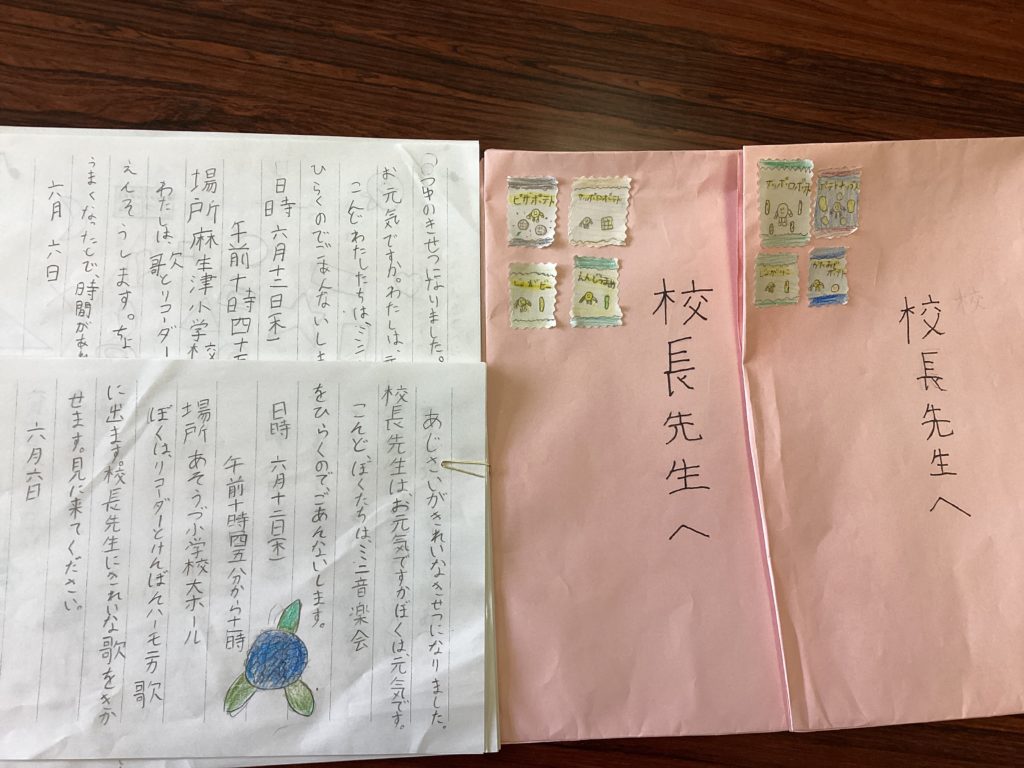 お元気ですか。わたしは、
こんどわたしたちは、ミニ
ひらくのでごあんないしま
日時 六月十二日(木)
午前十時四十五
場所麻生津小学校
わたしは、歌とリコーダー
えんそうします。
うまくなったので、時間があれ
六月 六日
あじさいがきれいなきせつになりました。
校長先生はお元気ですかぼくは、元気です。
こんど、ぼくたちは、ミニ音楽会
をひらくのでごあんないします。
日時 六月十二日(木)
午前十時四五分から十時
場所 あそうづ小学校大ホール
ぼくは、リコーダーとけんばんハーモニカ 歌
に出ます。校長先生にきれいな歌をきか
せます。見に来てください。
六月六日
ピザポテト
サッポロポテト
えんじゅまめ
校長先生へ
サッポロポテト
ポテトチップス
じゃがりこ
かたあげポテト
校長先生へ